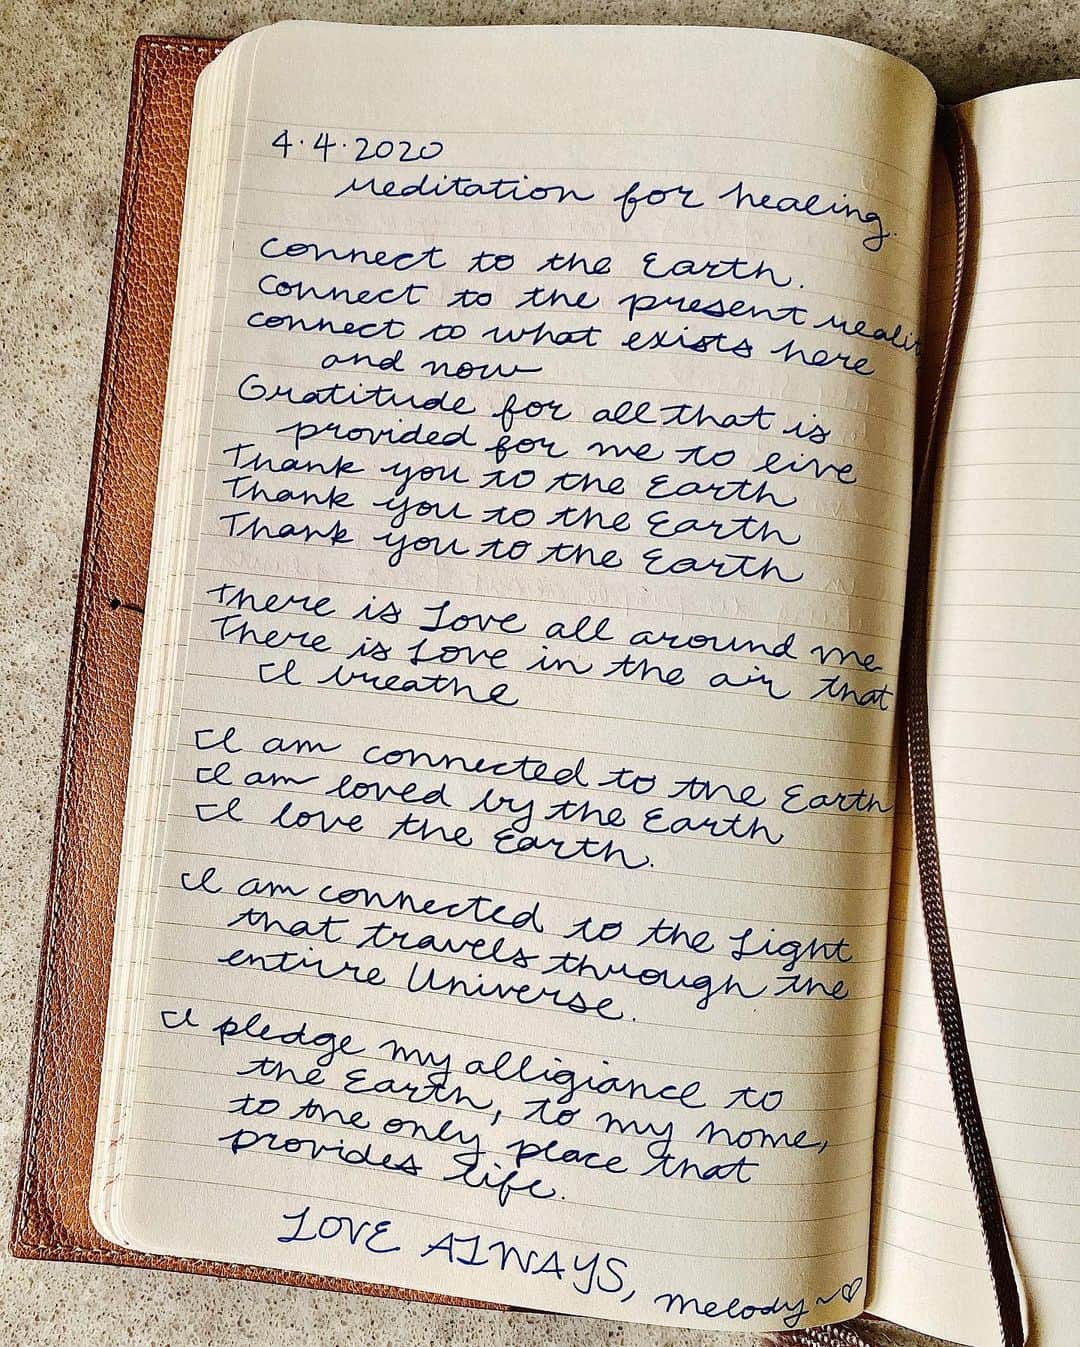 4.4.2020
Meditation for healing.
Connect to the Earth.
Connect to the present
connect to what exists here
and now
Gratitude for all that is
provided for me to live
Thank you to the Earth
Thank you to the Earth
Thank you to the Earth
There is Love all around me
There is Love in the air that
I breathe
I am connected to the Earth
I am loved by the Earth
I love the Earth.
I am connected to the Light
that travels through the
entire Universe.
I pledge my alligiance to
the Earth, to my home,
to the only place that
provides life.
LOVE ALWAYS,
Melody ~♡